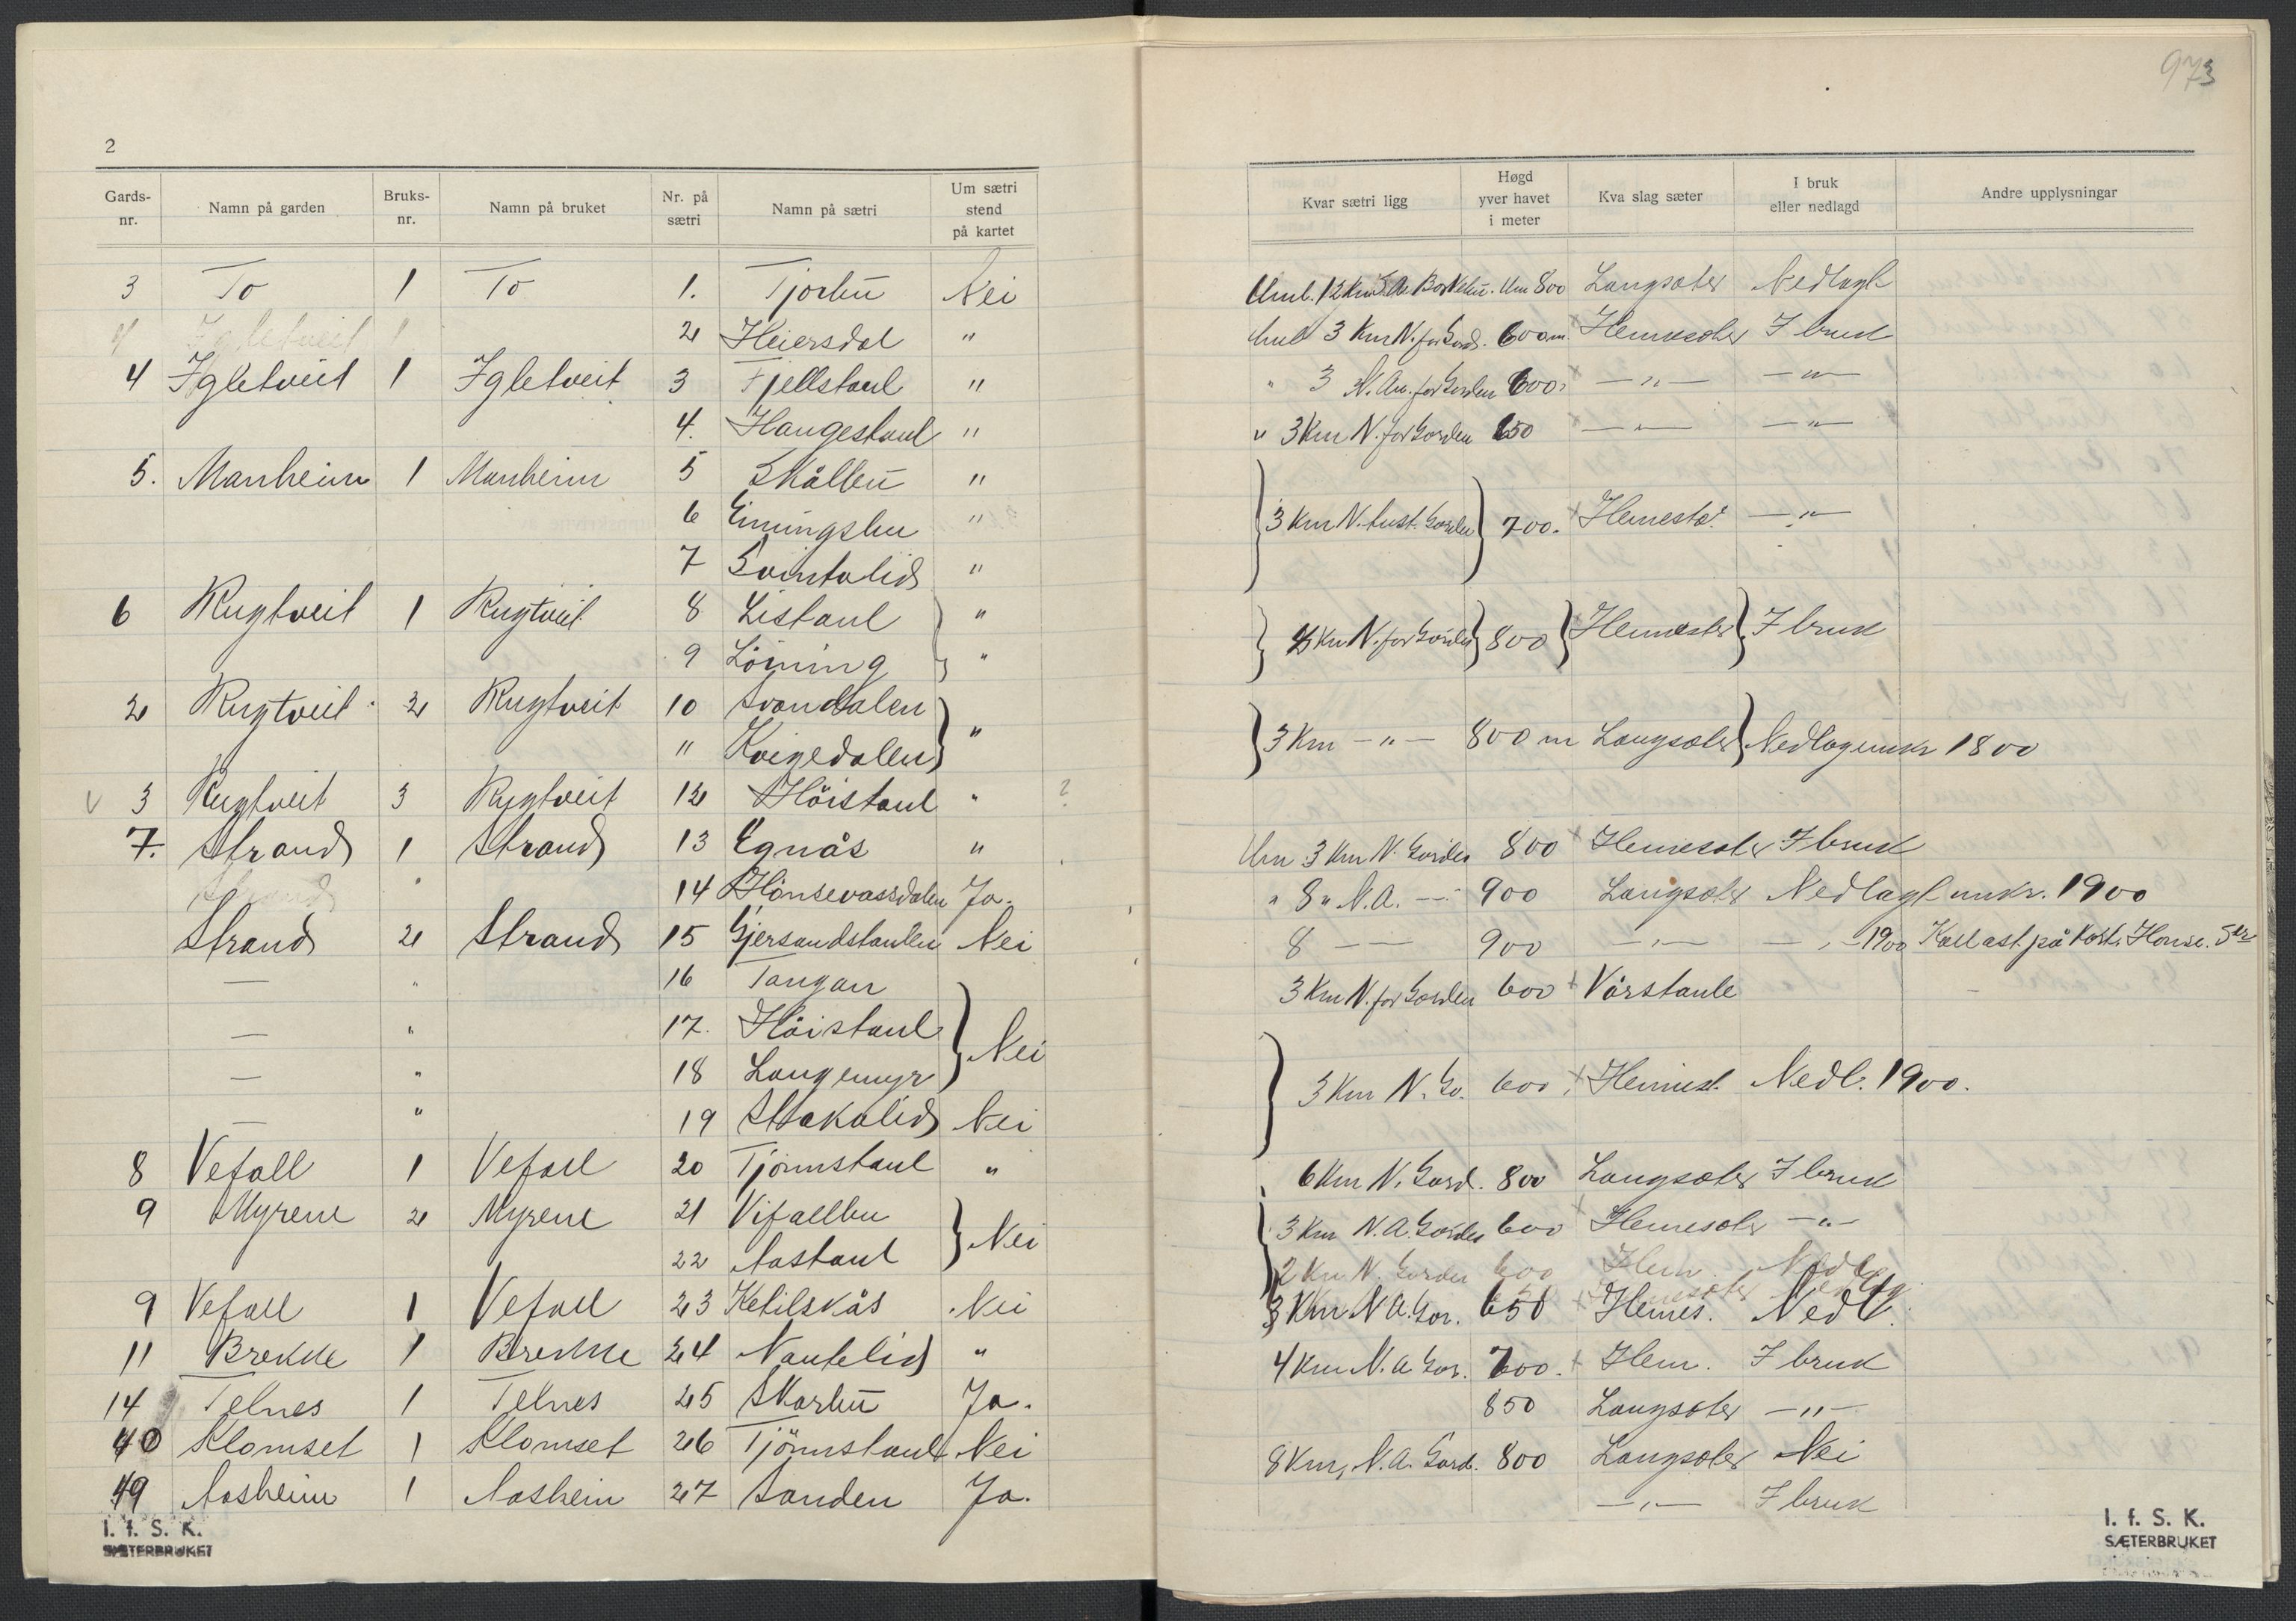 973
2
Gards-nr. Namn på garden Bruks-nr. Namn på bruket Nr. på sætri Namn på sætri Um sætri stend på kartet
3 To 1 To 1. Tjorbu Nei
2 Heiersdal "
4 Igletveit 1 Igletveit 3 Fjellstaul "
4. Haugestaul "
5. Manheim 1 Manheim 5 Skålbu "
6 Einingsbu "
7 Svintalid "
6 Rugtveit 1 Rugtveit 8 Listaul "
9 Löining "
2 Rugtveit 2 Rugtveit 10 Svandalen
" Kvigedalen "
v 3 Rugtveit 3 Rugtveit 12 Höistaul " ?
7. Strand 1 Strand 13 Egnås "
14 Hönsevassdalen Ja.
Strand 2 Strand 15 Gjersandstaulen Nei
— " 16 Tangan
— " 17. Höistaul
— " 18 Langemyr Nei
— " 19 Stakalid Nei
8 Vefall 1 Vefall 20 Tjönnstaul "
9 Myrene 2 Myrene 21 Vifallbu
22 Aastaul Nei
9 Vefall 1 Vefall 23 Ketilskås Nei
11 Brekke 1 Brekke 24 Nautelid "
14 Telnes 1 Telnes 25 Skorbu Ja.
40 Klomset 1 Klomset 26 Tjönnstaul Nei
49 Aasheim 1 Aasheim 27 Sanden Ja.
I. f. S. K.
SÆTERBRUKET
Kvar sætri ligg Høgd yver havet i meter Kva slag sæter I bruk eller nedlagd Andre upplysningar
Uml. 12 Km Um 800 Langsæter Nedlagt
Uml 3 Km N. for Gard. 600 m. Hemesæter I bruk
" 3 N. Au. for Garden 600. — " — — " —
" 3 Km N. for Garden 650 — " — — " —
3 Km N. Garden 700. Hemestö. — " —
Km N. for Garden 800 Hemesæter I bruk
3 Km — " — 800 m Langsæter Nedlag umkr 1800
Um 3 Km N. Garden 800 Hemesæter I bruk
" 8 " N.A. — 900 Langsæter Nedlagt umkr. 1900
8 — — 900 — " — — " — 1900 Kallast på Kart. Hönse. Str
3 Km N. for Garden 600 Vårstaule
3 Km N. Ga. 600. Heimest. Nedl. 1900.
6 Km N. Gard. 800 Langsæter I bruk
3 Km N.A. Garden 600 Hemesæter — " —
2 Km N. Garden 600 Hem. Nedlag
3 Km N A. Gar. 650 Hemes. Nedl.
4 Km N.A Gar. 700. Hem. I bruk
850 Langsæter — " —
8 Km, N.A. Gard. 800 Langsæter Nei
— " — I bruk
I. f. S. K.
SÆTERBRUKET